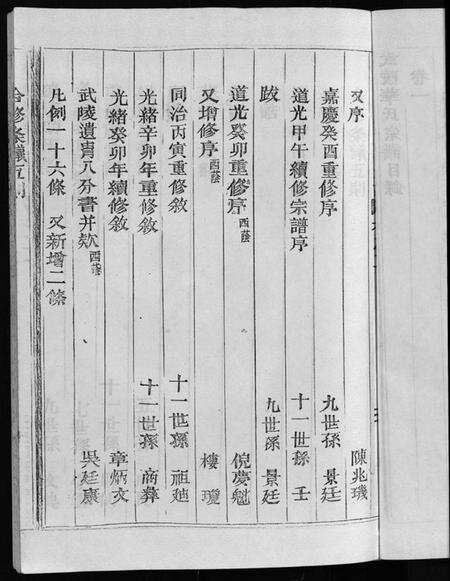 又序 陳兆璣
嘉慶癸酉重修序 九世孫 景廷
道光甲午續修宗譜序 十一世孫 壬
跋 九世孫 景廷
道光癸卯重修序西蔭 倪夢魁
又增修序西蔭 樓瓊
同治丙寅重修敘 十一世孫 祖
光緒辛卯年重修敘 十一世孫 商彝
光緒癸卯年續修敘 章炳文
武陵遺胄八分書并款西蔭 吳廷康
凡例一十六條 又新增二條